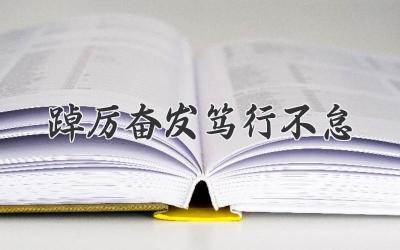 踔厉奋发笃行不怠